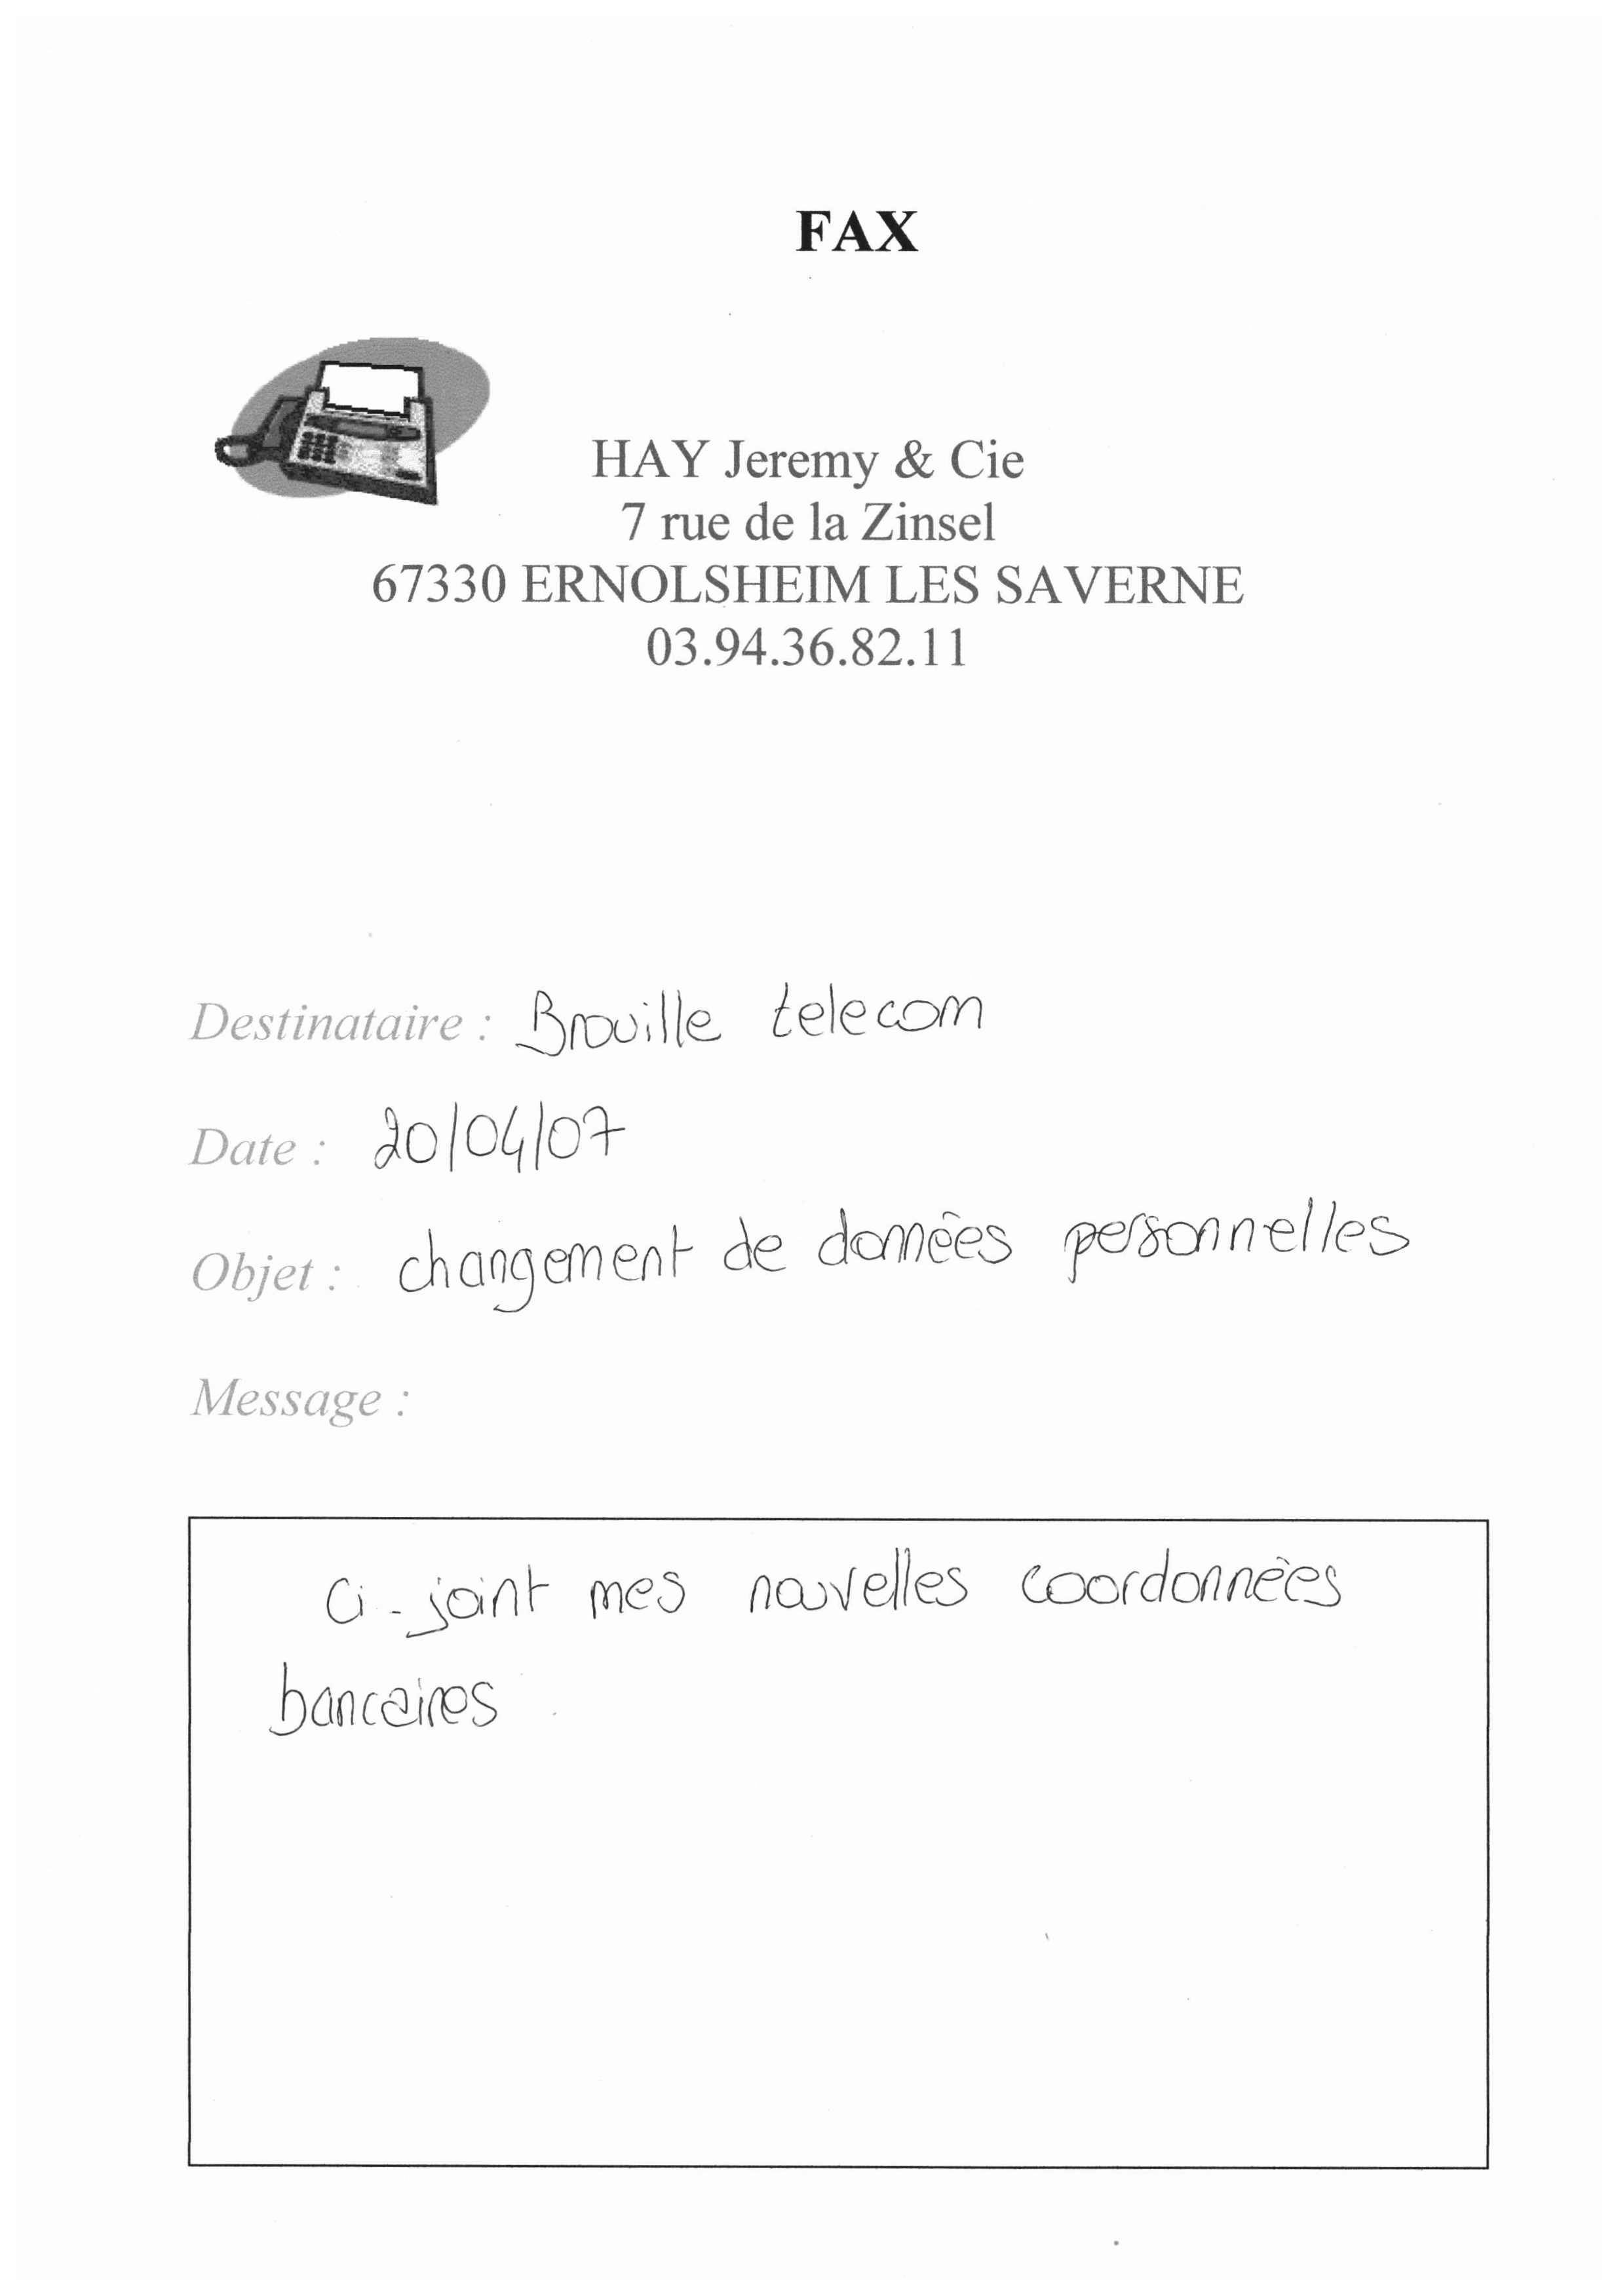 FAX
HAY Jeremy & Cie
7 rue de la Zinsel
67330 ERNOLSHEIM LES SAVERNE
03.94.36.82.11
Destinataire : Brouille telecom
Date : 20/04/07
Objet : changement de données personnelles
Message :
Ci-joint mes nouvelles coordonnées
bancaires.